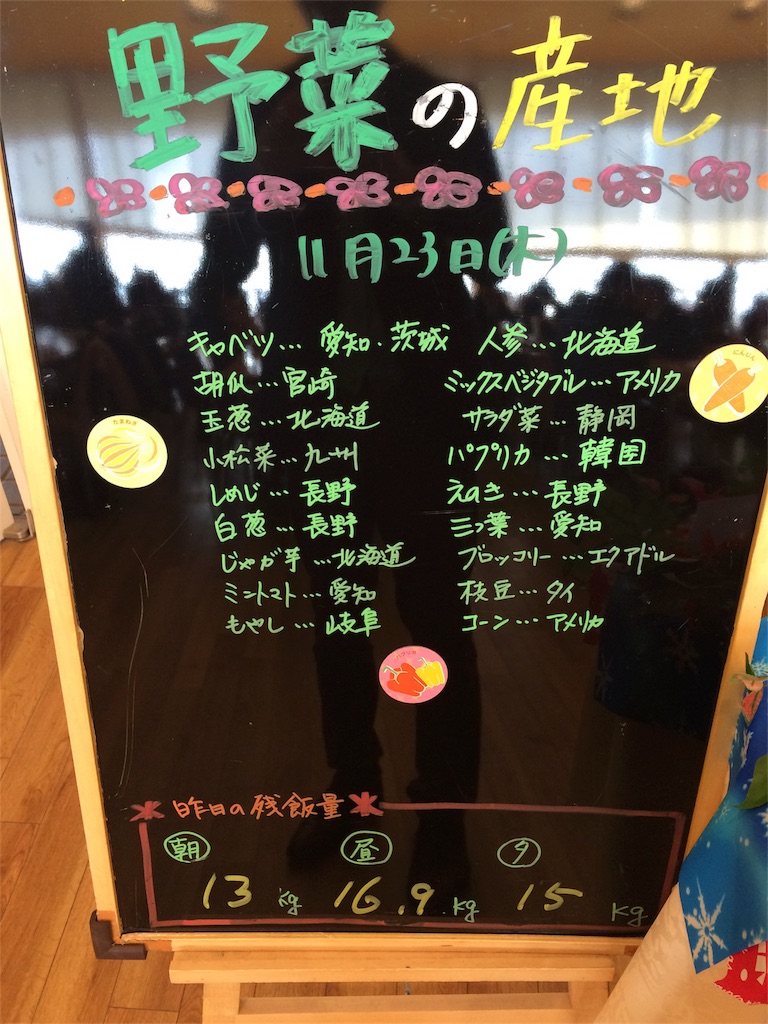 野菜の産地
11月23日(木)
キャベツ… 愛知・茨城
胡瓜…宮崎
玉葱…北海道
小松菜…九州
しめじ…長野
白葱…長野
じゃが芋…北海道
ミニトマト…愛知
もやし…岐阜
人参…北海道
ミックスベジタブル…アメリカ
サラダ菜…静岡
パプリカ…韓国
えのき…長野
三ッ葉…愛知
ブロッコリー…エクアドル
枝豆…タイ
コーン…アメリカ
たまねぎ
にんじん
パプリカ
昨日の残飯量
朝 昼 夕
13 kg 16.9 kg 15 kg